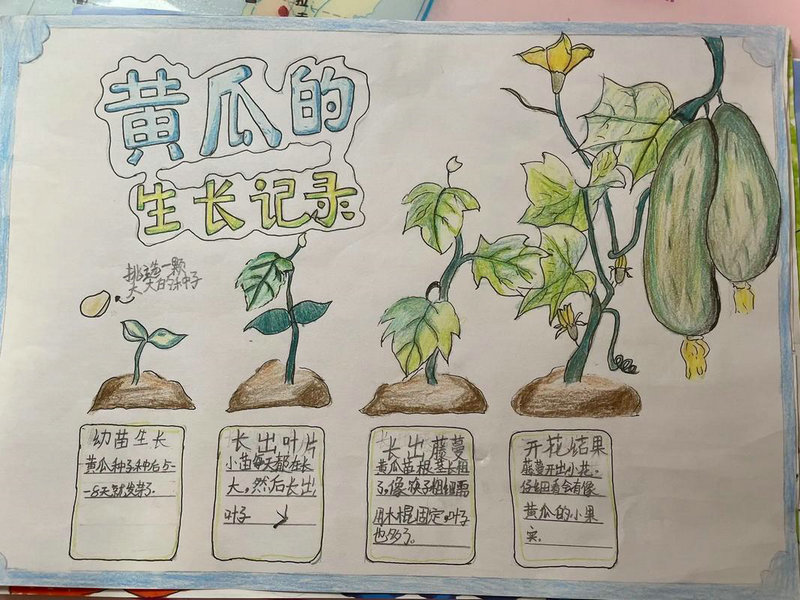 黄瓜的
生长记录
挑选一颗
大大的种子
幼苗生长
黄瓜种子种后5-
-8天就发芽了.
长出叶片
小苗每天都在长
大,然后长出
叶子
长出藤蔓
黄瓜苗根茎长粗
了,像筷子粗细需
用木棍固定,叶子
也多了。
开花结果
藤蔓开出小花.
仔细看会有像
黄瓜的小果
实.